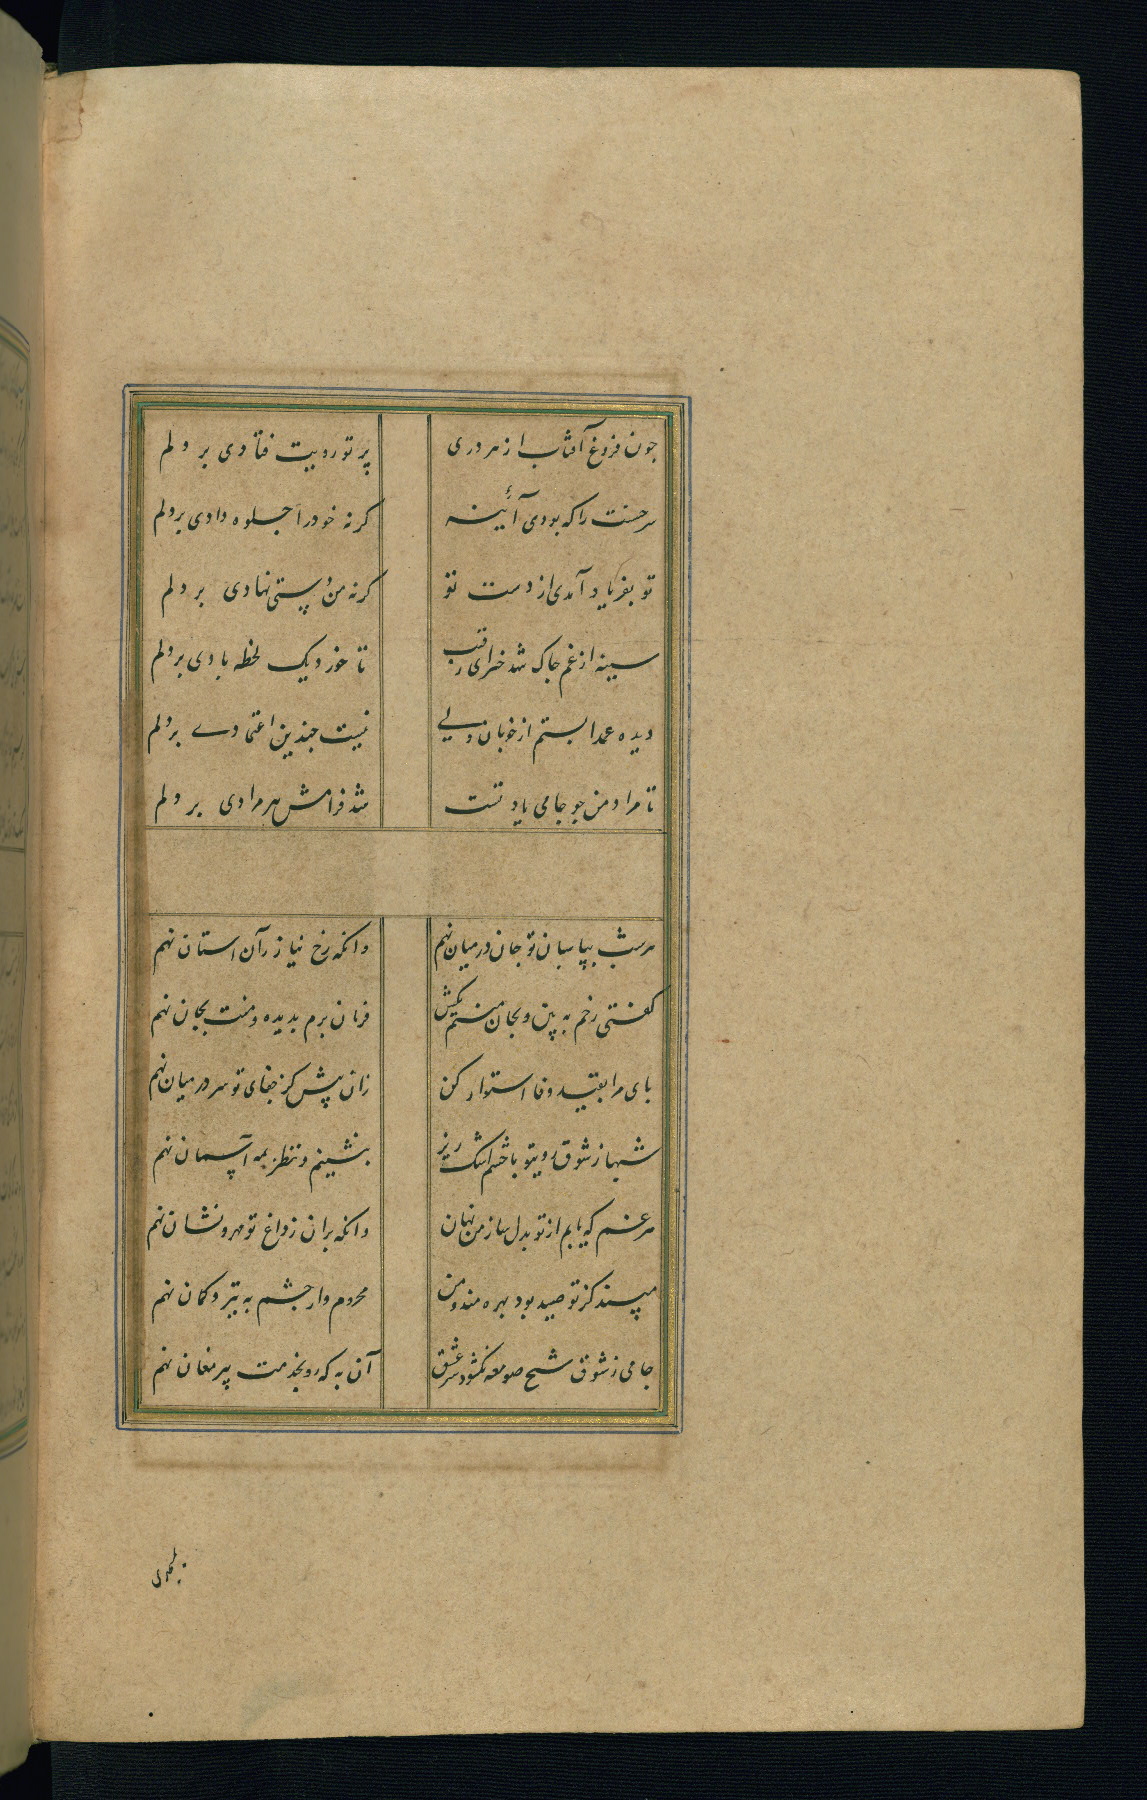 چون فروغ آفتاب از هر دری پرتو رویت فتادی بر دلم
سر حسنت را که بودی آئینه کرنه خود را جلوه دادی بر دلم
تو بفریاد آمدی از دست تو کرنه من دستی نهادی بر دلم
سینه از غم چاک شد خیز ای رقیب تا خورد یک لحظه بادی بر دلم
دیده عمدا بستم از خوبان ولی نیست چندین اعتمادی بر دلم
تا مراد من چو جامی یاد تست شد فرامش هر مرادی بر دلم
هر شب بپاسبان تو جان در میان نهم وانکه رخ نیاز بر آن استان نهم
کفتی رخم به بین و بجان منتم بکش فرمان برم بدیده و منت بجان نهم
پای مرا بقید وفا استوار کن زان پیش کز جفای تو سر در میان نهم
شبها ز شوق رویتو با چشم اشک ریز بنشینم و نظر بمه آسمان نهم
هر غم که یابم از تو بدل سازمن نهان وانکه بر ان ز داغ تو مهر و نشان نهم
مپسند کز تو صید بود بهره مند و من محروم وار چشم به تیر و کمان نهم
جامی ز شوق شیخ صومعه نکشود سر عشق آن به که رو بخدمت پیر مغان نهم